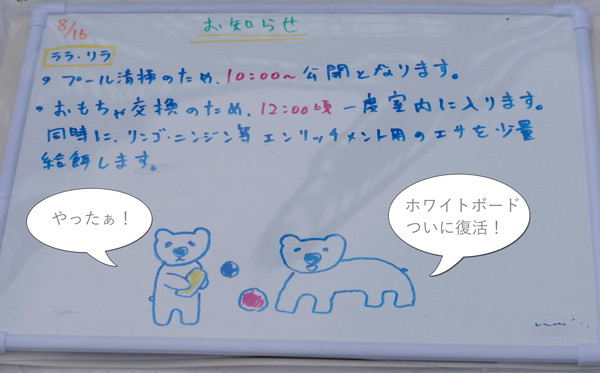 8/16
お知らせ
ララ・リラ
・プール清掃のため、10:00〜公開となります。
・おもちゃ交換のため、12:00頃 一度室内に入ります。
同時に、リンゴ・ニンジン等 エンリッチメント用のエサを少量
給餌します。
やったぁ！
ホワイトボード
ついに復活！